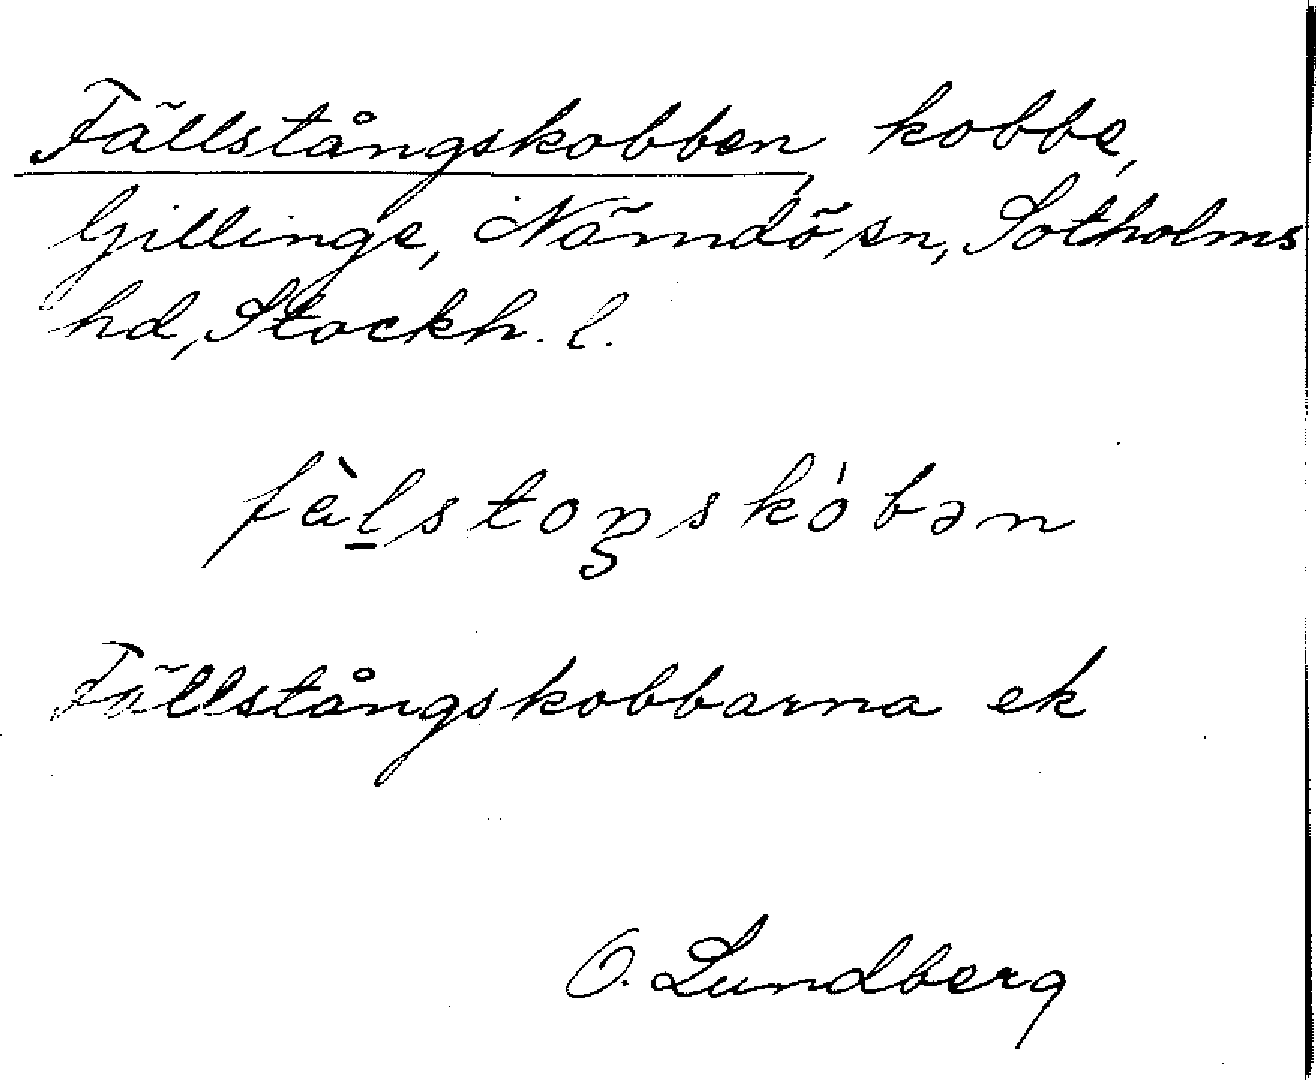 Fällstångskobben, kobbe,
Gillinge, Nämdö sn, Sotholms
hd, Stockh. l.
fèḻstoŋskóbən
Fällstångskobbarna ek
O. Lundberg